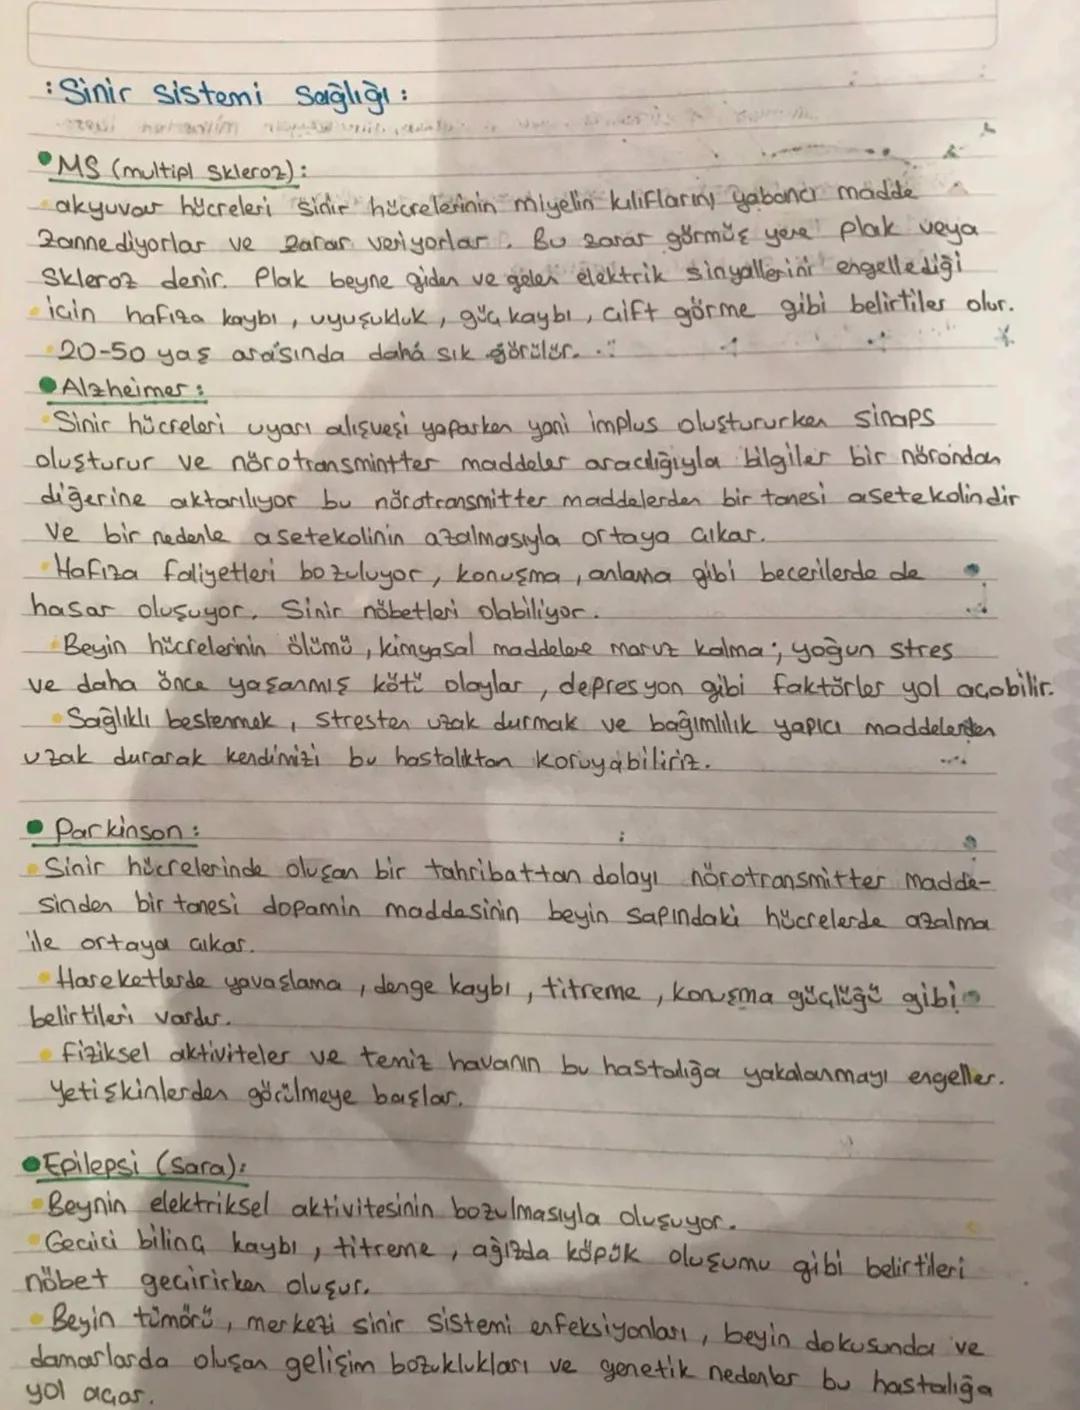 : Sinir sistemi Sağlığı :
MS (multipl Skleroz) :
akyuvar hücreleri sinir hücrelerinin miyelin kılıflarını yabancı madde
zannediyorlar ve zarar veriyorlar. Bu zarar görmüş yere plak veya
Skleroz denir. Plak beyne giden ve gelen elektrik sinyallerini engellediği
için hafıza kaybı, uyuşukluk, güç kaybı, çift görme gibi belirtiler olur.
20-50 yaş arasında daha sık görülür.
Alzheimer :
Sinir hücreleri uyarı alışveşi yaparken yani implus oluştururken sinaps
oluşturur ve nörotransmintter maddeler aracılığıyla bilgiler bir nörondan
diğerine aktarılıyor bu nörotransmitter maddelerden bir tanesi asetekolindir
ve bir nedenle asetekolinin azalmasıyla ortaya çıkar.
Hafıza faliyetleri bozuluyor, konuşma, anlama gibi becerilerde de
hasar oluşuyor. Sinir nöbetleri olabiliyor.
Beyin hücrelerinin ölümü, kimyasal maddelere maruz kalma, yoğun stres
ve daha önce yaşanmış kötü olaylar, depresyon gibi faktörler yol açabilir.
Sağlıklı beslenmek, stresten uzak durmak ve bağımlılık yapıcı maddelerden
uzak durarak kendimizi bu hastalıktan koruyabiliriz.
Parkinson :
Sinir hücrelerinde oluşan bir tahribattan dolayı nörotransmitter madde-
sinden bir tanesi dopamin maddesinin beyin sapındaki hücrelerde azalma
ile ortaya çıkar.
Hareketlerde yavaşlama, denge kaybı, titreme, konuşma güçlüğü gibi
belirtileri vardır.
Fiziksel aktiviteler ve temiz havanın bu hastalığa yakalanmayı engeller.
Yetişkinlerden görülmeye başlar.
Epilepsi (sara):
Beynin elektriksel aktivitesinin bozulmasıyla oluşuyor.
Gecici bilinç kaybı, titreme, ağızda köpük oluşumu gibi belirtileri
nöbet geçirirken oluşur.
Beyin tümörü, merkezi sinir sistemi enfeksiyonları, beyin dokusunda ve
damarlarda oluşan gelişim bozuklukları ve genetik nedenler bu hastalığa
yol açar.